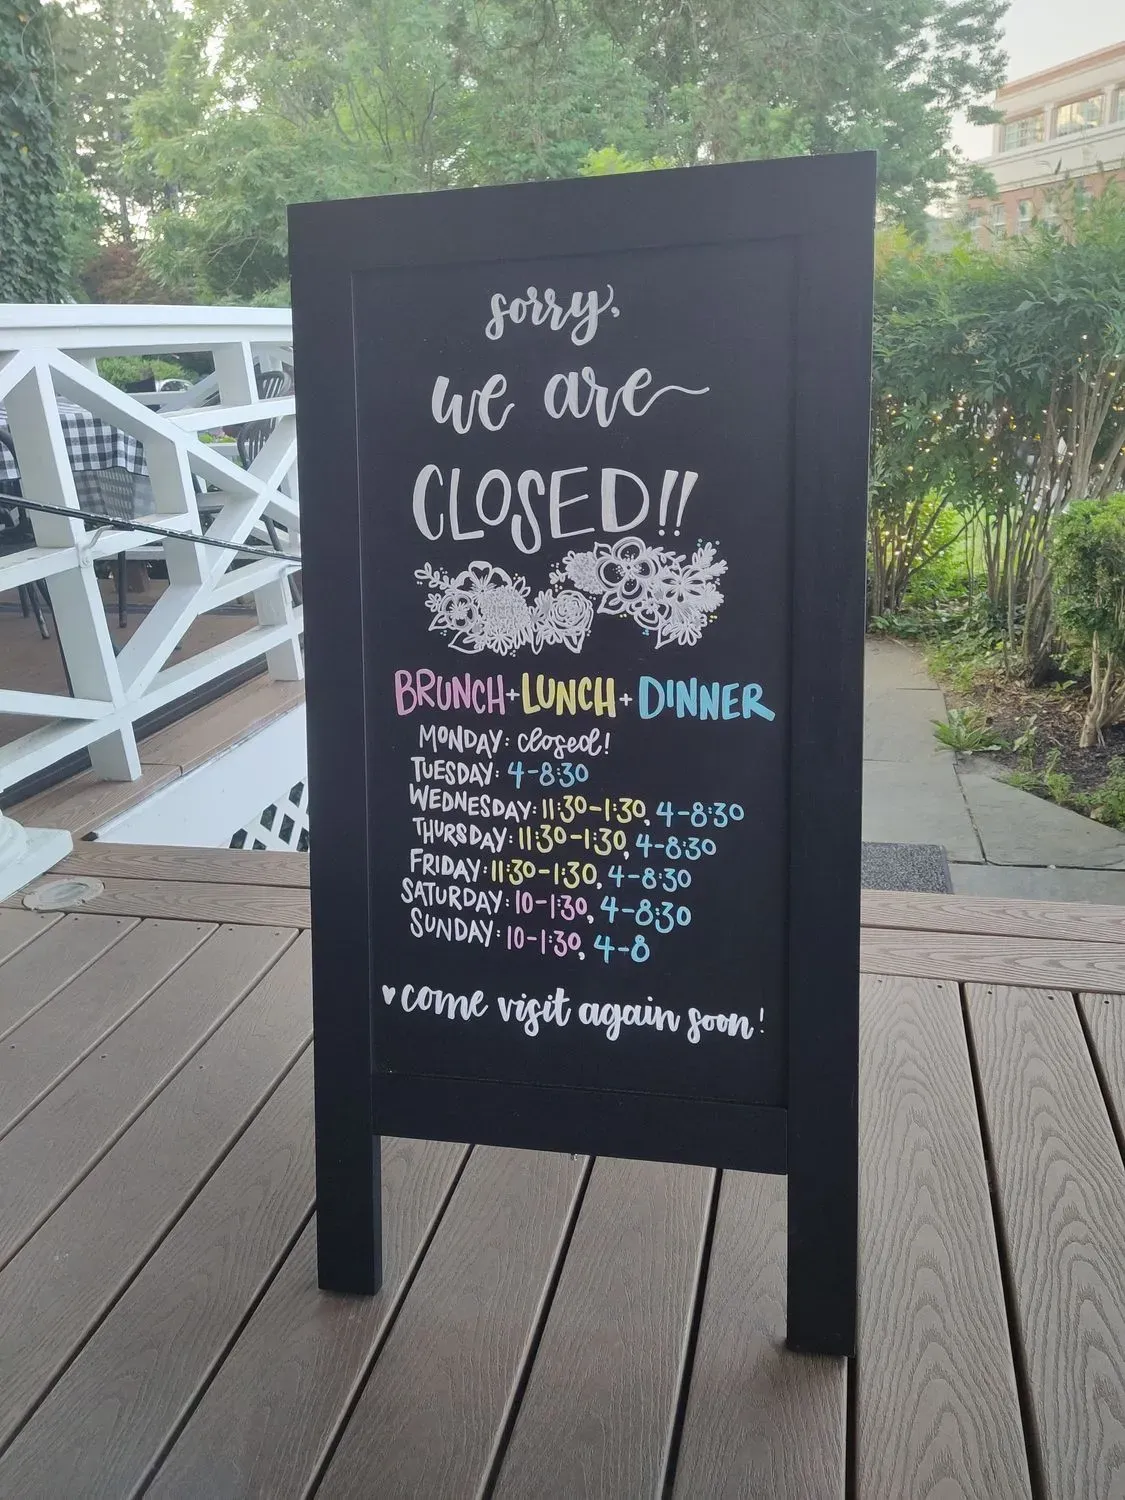 sorry,
we are
CLOSED!!
BRUNCH+LUNCH+DINNER
MONDAY: closed!
TUESDAY: 4-8:30
WEDNESDAY: 11:30-1:30, 4-8:30
THURSDAY: 11:30-1:30, 4-8:30
FRIDAY: 11:30-1:30, 4-8:30
SATURDAY: 10-1:30, 4-8:30
SUNDAY: 10-1:30, 4-8
♥come visit again soon!